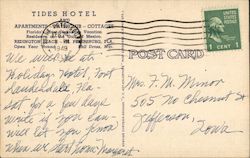 TIDES HOTEL
APARTMENTS - COTTAGES
Florida's
Vacation
REDINGTON BEACH - ST. PETERSBURG,
Open Year
1949
POST CARD
1 CENT 1
We will be at
Holiday Hotel, Fort
Lauderdale, Fla.
for a few days
write if you can
will let you know
when we start home Margaret
Mrs. F. M. Minor
505 No Chesnut St
Jefferson,
Iowa